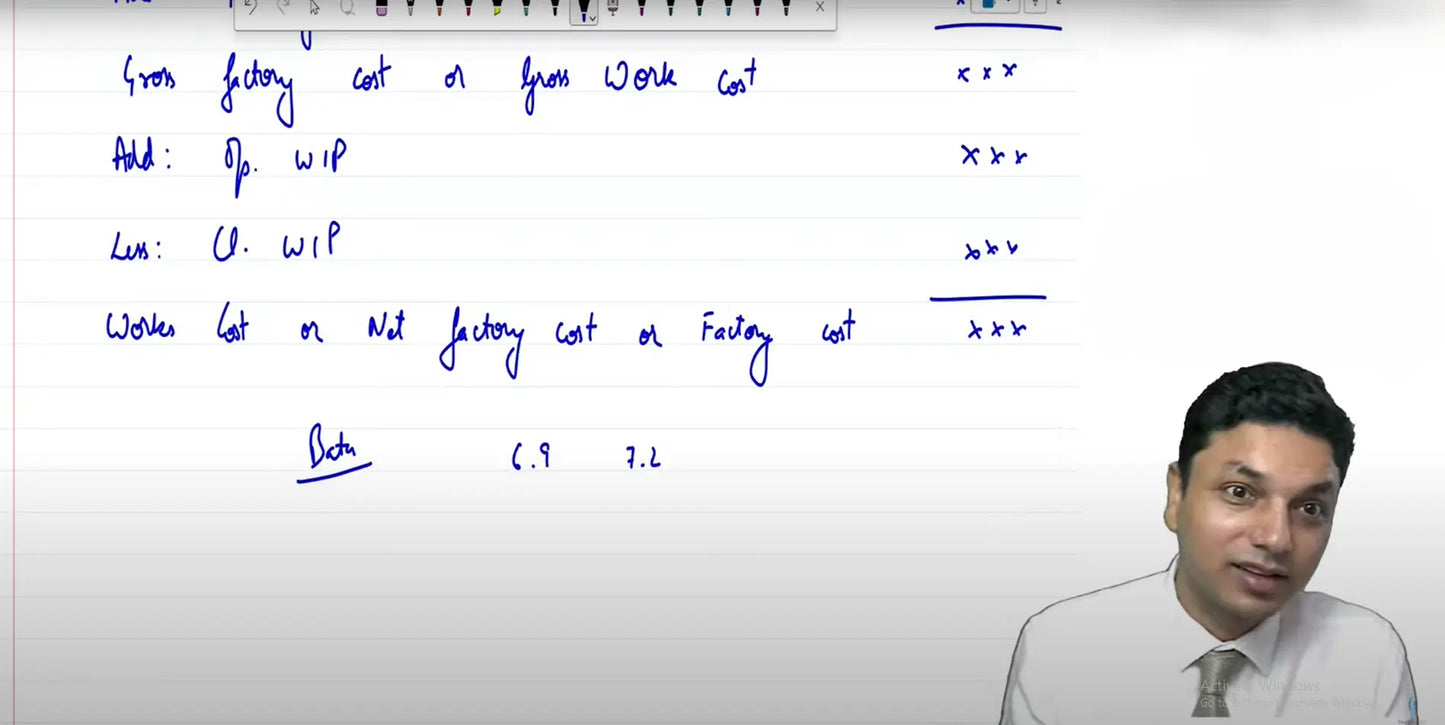 Gross factory cost or Gross Work Cost xxx
Add: Op. WIP xxx
Less: Cl. WIP xxx
Works Cost or Net factory cost or Factory cost xxx
Data 6.9 7.2
Activate Windows